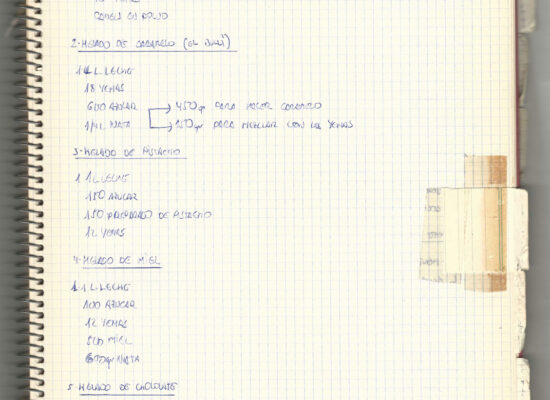 CANELA EN POLVO
2-HELADO DE CARAMELO (EL BULLI)
1 L. LECHE
18 YEMAS
600 AZUCAR → 450gr PARA HACER CARAMELO
1/4 L. NATA → 150gr PARA MEZCLAR CON LAS YEMAS
3-HELADO DE PISTACHO
1 L LECHE
150 AZUCAR
150 PREPARADO DE PISTACHO
12 YEMAS
4-HELADO DE MIEL
1 L. LECHE
100 AZUCAR
12 YEMAS
MIEL
NATA
5-HELADO DE CHOCOLATE